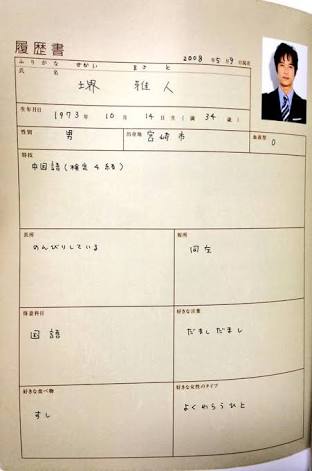 履歴書
2008年5月9日現在
ふりがな さかい まさと
氏名 堺 雅人
生年月日 1973年 10月 14日生(満 34歳)
性別 男 出身地 宮崎市 血液型 O
特技
中国語(検定4級)
長所
のんびりしている
短所
同左
得意科目
国語
好きな言葉
だましだまし
好きな食べ物
すし
好きな女性のタイプ
よくわらうひと